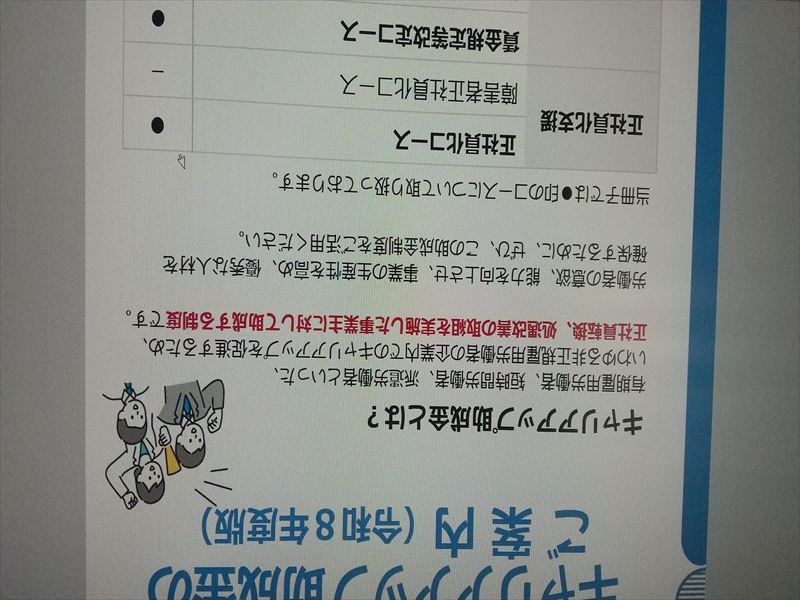 キャリアアップ助成金の
ご案内（令和８年度版）
キャリアアップ助成金とは？
有期雇用労働者、短時間労働者、派遣労働者といった、
いわゆる非正規雇用労働者の企業内でのキャリアアップを促進するため、
正社員転換、処遇改善の取組を実施した事業主に対して助成する制度です。
労働者の意欲、能力を向上させ、事業の生産性を高め、優秀な人材を
確保するために、ぜひ、この助成金制度をご活用ください。
当冊子では●印のコースについて取り扱っております。
正社員化支援
正社員化コース ●
障害者正社員化コース －
賃金規定等改定コース ●